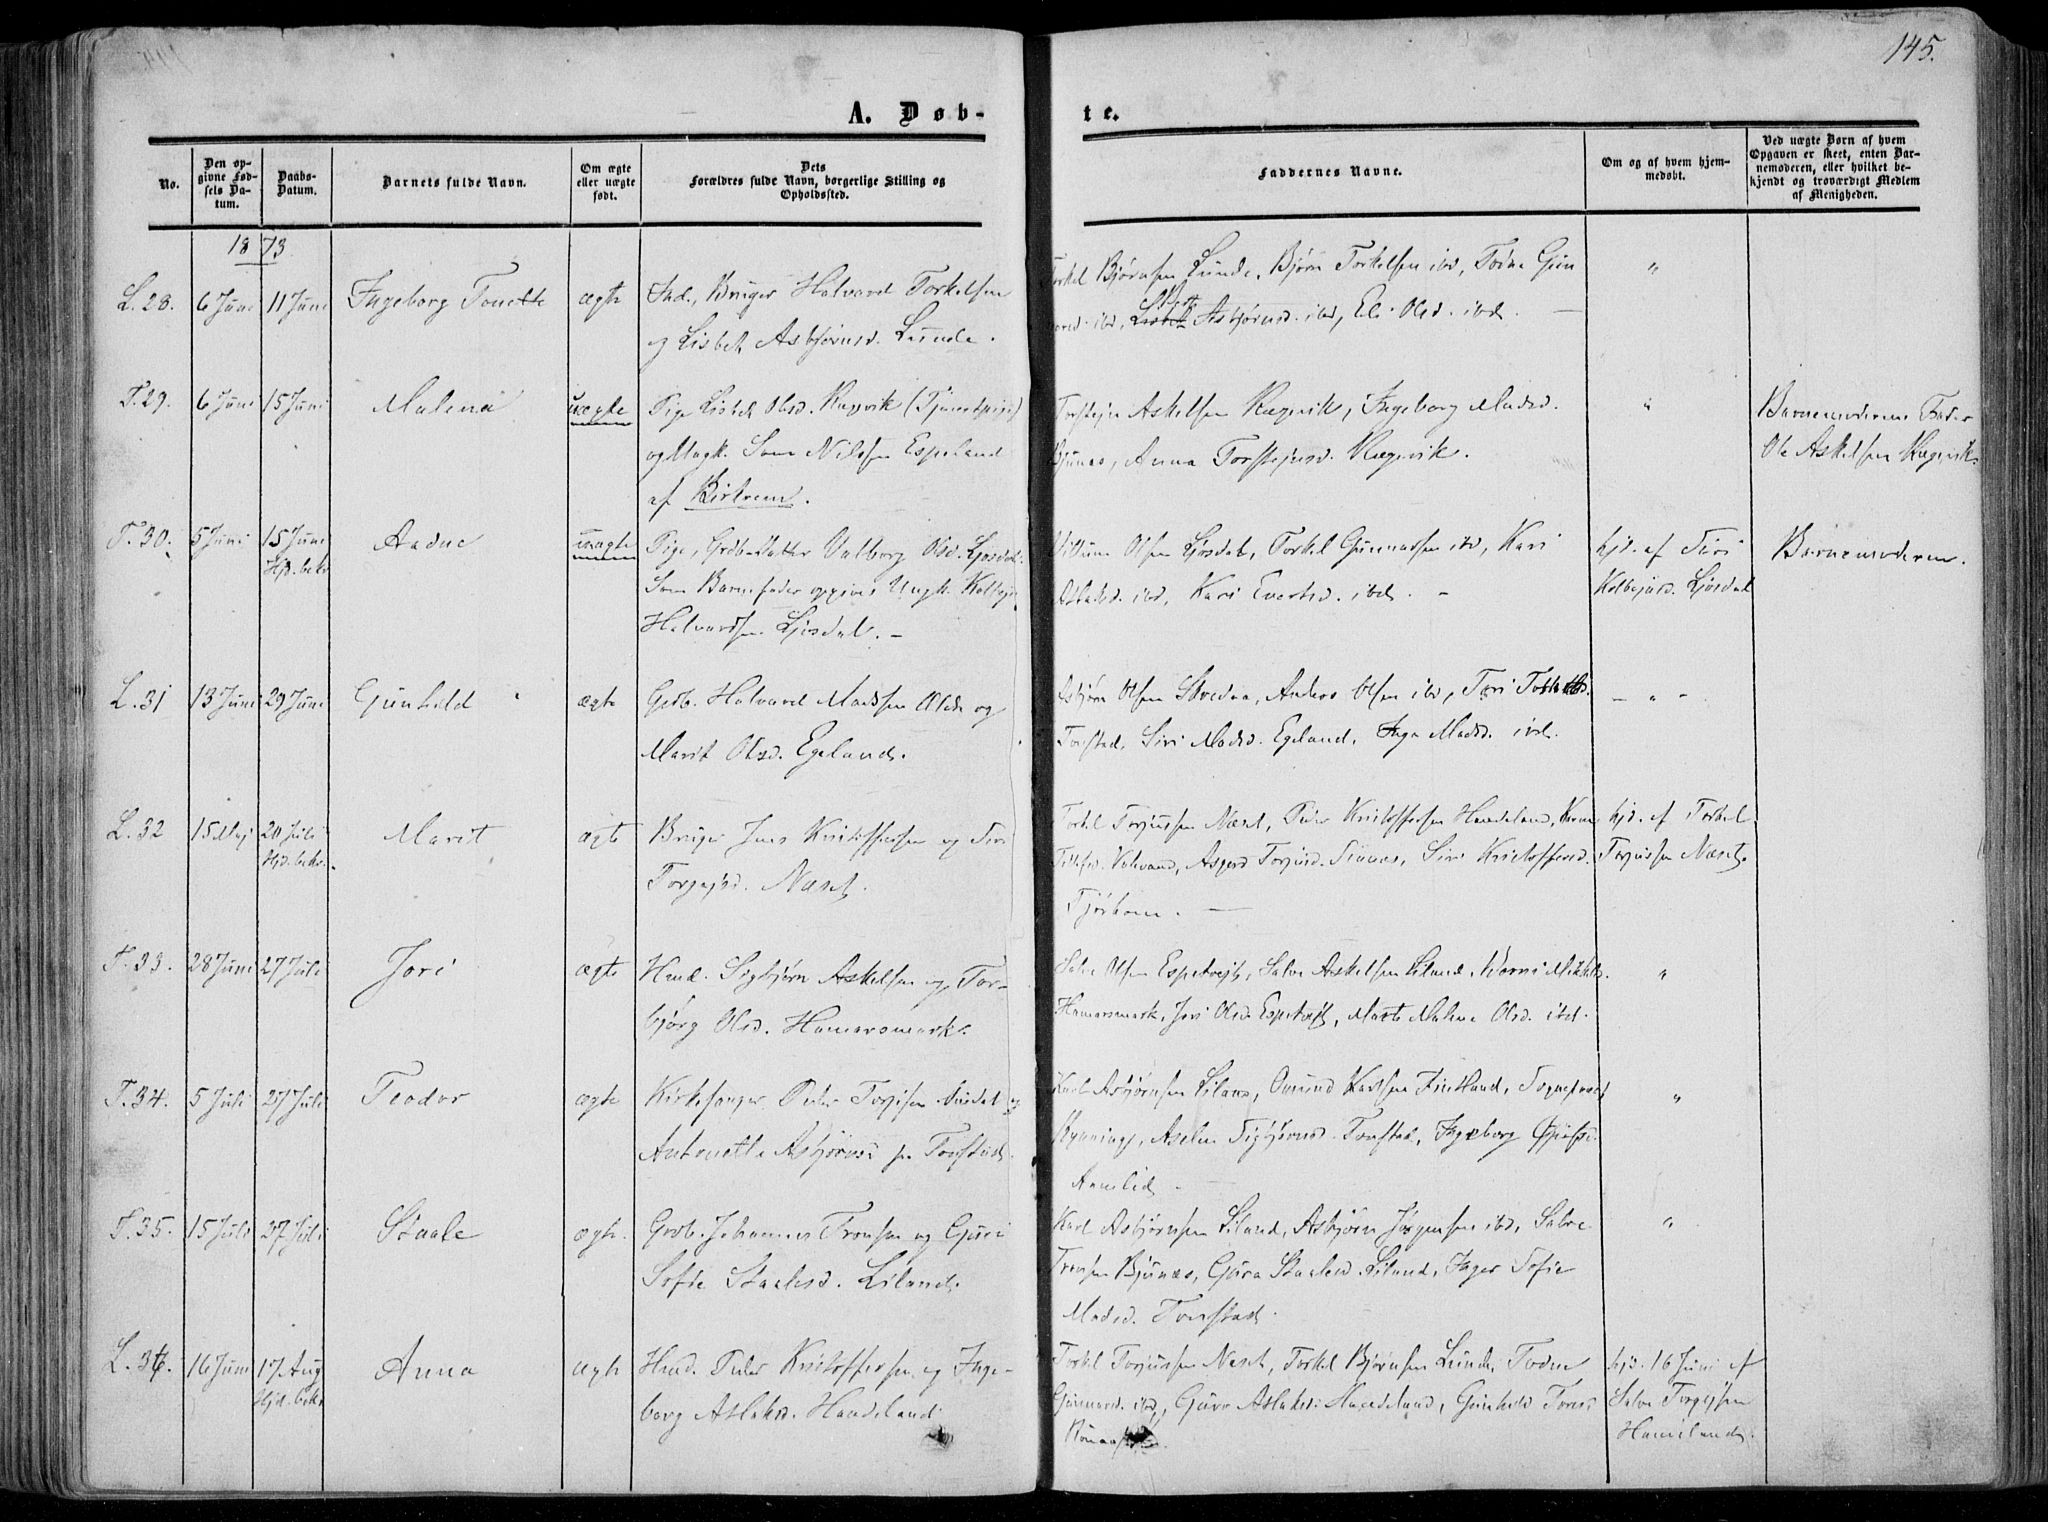 145.
A. Døb-
te.
No.
Den op-
givne Fød-
sels Da-
tum.
Daabs-
Datum.
Barnets fulde Navn.
Om ægte
eller uægte
født.
Dets
Forældres fulde Navn, borgerlige Stilling og
Opholdssted.
Faddernes Navne.
Om og af hvem hjem-
medøbt.
Ved uægte Børn af hvem
Opgaven er skeet, enten Bar-
nemoderen, eller hvilket be-
kjendt og troværdigt Medlem
af Menigheden.
1873
L. 28. 6 Juni 11 Juni Ingeborg Tonette ægte Ind., Bruger Halvard Torkelsen
og Lisbet Asbjørnsd. Lunde.
Torkel Bjørnsen Lunde, Bjørn Torkelsen ibd, Todne Gun
narsd. ibd, Asbjørnsd. ibd, Eli Olsd. ibd. "
T. 29. 6 Juni 15 Juni Malena uægte Pige Lisbet Olsd. Røgevik (Tjenestpige)
og Ungk. Sam Nilssen Espeland
af Birkrem.
Torstejn Askelsen Røgevik, Ingeborg Madsd.
Bjunæs, Anna Torstejnsd. Røgevik. "
Barnemoderens Fader
Ole Askelsen Røgevik
T. 30. 5 Juni 15 Juni Aadne uægte Pige, Grdb. Datter Valborg Olsd. Ljosdal.
Hjd. bekr.
Som Barnefader opgives Ungk. Kolbejn
Halvardsen Ljosdal. –
Olsen Ljosdal, Torkel Gunnarsen ibd, Kari
Aslaksd. ibd, Kari Evertsd. ibd. –
hjd. af Siri
Kolbejnsd. Ljosdal
Barnemoderen.
L. 31 13 Juni 29 Juni Gunhild ægte Grdb. Halvard Madsen Olde og
Marit Olsd. Egeland.
Asbjørn Olsen Skredaa, Anders Olsen ibd, Tori
Tonstad, Siri Madsd. Egeland, Inga Madsd. ibd. – " –
L. 32 15 Maj 20 Juli Marit ægte Bruger Jens Kristoffersen og Siri
Hjd. bekr.
Torgejsd. Næset.
Torkel Torjussen Næset, Peder Kristoffersen Haudeland,
Asgerd Torjusd. Sinnæs, Siri Kristoffersd.
Tjørhom. –
hjd. af Torkel
Torjussen Næset.
T. 33. 28 Juni 27 Juli Jori ægte Hmd. Sigbjørn Askelsen og Tor-
bjørg Olsd. Hamarsmark.
Salve Olsen Espetvejt, Salve Askelsen Liland,
Hamarsmark, Jori Olsd. Espetvejt, Marte Malene Olsd. ibd. "
T. 34. 5 Juli 27 Juli Teodor ægte Kirkesanger Peder Torjisen og
Antonette Asbjørnsd. paa Tonstad.
Karl Asbjørnsen Liland, Omund Karlsen Fintland,
Aselin Sigbjørnsd. Tonstad, Ingeborg
Aamlid – "
T. 35. 15 Juli 27 Juli Staale ægte. Grdb. Johannes Tronsen og Guri
Sofie Staalesd. Liland.
Karl Asbjørnsen Liland, Asbjørn Jørgensen ibd, Salve
Tronsen Bjunæs, Gura Staalesd. Liland, Inger Sofie
Madsd. Tonstad. "
L. 36. 16 Juni 17 Aug Anna ægte Hmd. Peder Kristoffersen og Inge-
Hjd. bekr.
borg Aslaksd. Haudeland.
Torkel Torjussen Næset, Torkel Bjørnsen Lunde, Todne
Gunnarsd. ibd, Guro Aslaksd. Haudeland, Gunhild
hjd. 16 Juni af
Salve Torgejsen
Haudeland.